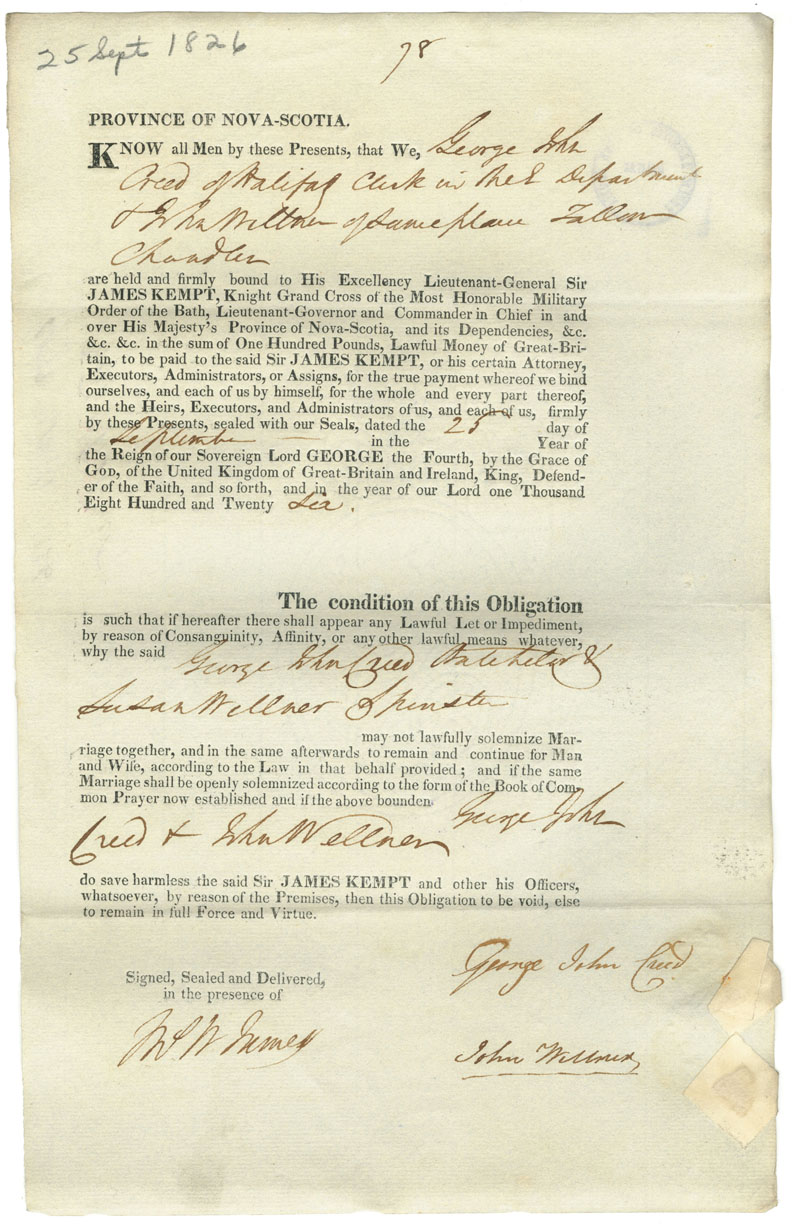 25 Sept 1826
78
PROVINCE OF NOVA-SCOTIA.
KNOW all Men by these Presents, that We, George John
Creed of Halifax Clerk in the E Department
& John Wellner of same place Tallow
Chandler
are held and firmly bound to His Excellency Lieutenant-General Sir
JAMES KEMPT, Knight Grand Cross of the Most Honorable Military
Order of the Bath, Lieutenant-Governor and Commander in Chief in and
over His Majesty's Province of Nova-Scotia, and its Dependencies, &c.
&c. &c. in the sum of One Hundred Pounds, Lawful Money of Great-Bri-
tain, to be paid to the said Sir JAMES KEMPT, or his certain Attorney,
Executors, Administrators, or Assigns, for the true payment whereof we bind
ourselves, and each of us by himself, for the whole and every part thereof,
and the Heirs, Executors, and Administrators of us, and each of us, firmly
by these Presents, sealed with our Seals, dated the 25 day of
September — in the Year of
the Reign of our Sovereign Lord GEORGE the Fourth, by the Grace of
GOD, of the United Kingdom of Great-Britain and Ireland, King, Defend-
er of the Faith, and so forth, and in the year of our Lord one Thousand
Eight Hundred and Twenty Six.
The condition of this Obligation
is such that if hereafter there shall appear any Lawful Let or Impediment,
by reason of Consanguinity, Affinity, or any other lawful means whatever,
why the said George John Creed Batchelor &
Susan Wellner Spinster
may not lawfully solemnize Mar-
riage together, and in the same afterwards to remain and continue for Man
and Wife, according to the Law in that behalf provided; and if the same
Marriage shall be openly solemnized according to the form of the Book of Com-
mon Prayer now established and if the above bounden George John
Creed & John Wellner
do save harmless the said Sir JAMES KEMPT and other his Officers,
whatsoever, by reason of the Premises, then this Obligation to be void, else
to remain in full Force and Virtue.
Signed, Sealed and Delivered,
in the presence of
George John Creed
James
John Wellner